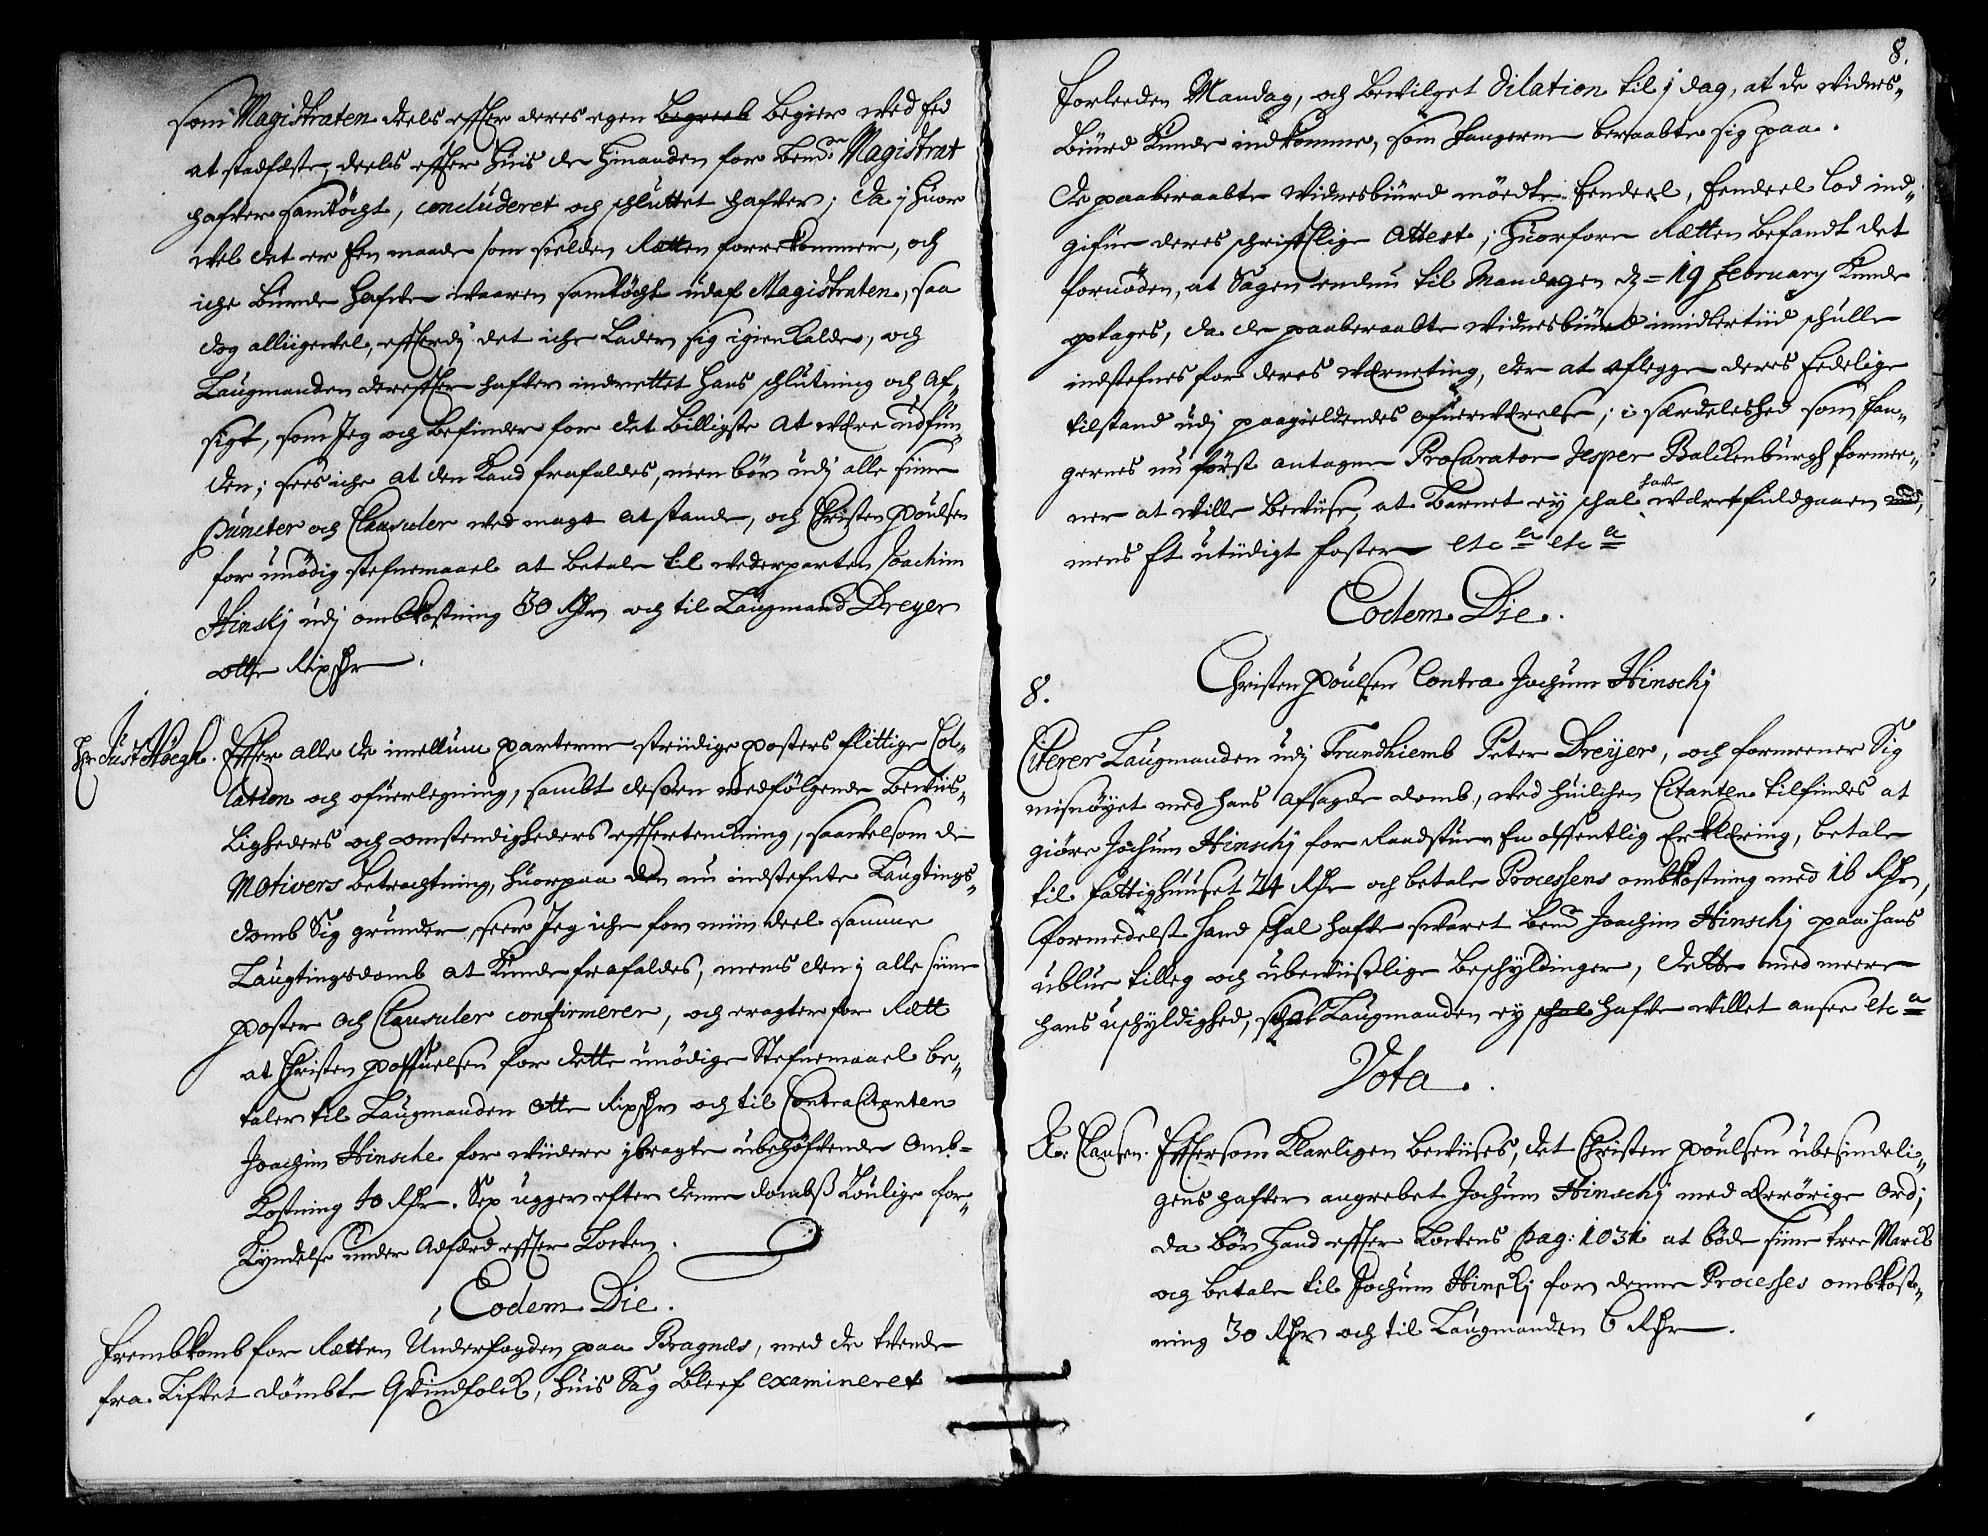 som Magistraten deels effter deres egen begreeb begier med Eed
at stadfæste, deels effter huis de hinanden for bemte Magistrat
hafver samtöcht, concluderet och schluttet hafver; da i huor
vel det er Een maade som sielden Rætten forrekommer, och
iche burde hafve waaren samtöcht udaf Magistraten, saa
dog alligevel, efftterdj det iche lader sig igienkalde, och
Laugmanden dereffter hafver indrettet hans schlutning och Af-
sigt, som Jeg och befinder for det billigste at være udfun-
den; sees iche at den kand frafaldes, men bör udj alle siine
puncter och Clausuler ved magt at stande, och Christen Poulsen
for unödig stefnemaael at betale til vederparten Joachim
Hinskj udj ombkostning 30 Rdr och til Laugmand Dreyer
otte Rixdr.
Hr Just Höegh. Effter alle de imellum parterne striidige posters flittige Col-
lation och ofuerlegning, sambt dessen medfölgende Beviis-
ligheders och omstendigheders efftertencking, saavelsom de
Motivers betrachtning, huorpaa den nu indstefnte Laugtings-
domb Sig grunder, seer Jeg iche for min deel samme
Laugtingsdomb at kunde frafaldes, mens den i alle siine
poster och Clausuler confirmerer, och eragter for Rætt
at Christen Pofuelsen for dette unödige Stefnemaael be-
taler til Laugmanden otte Rixdr och til ContraCitanten
Joachim Hinsche for viidere ibragte ubehöfvende Omb-
kostning 40 Rdr. Sex ugger efter denne dombs Loulige for-
kyndelse under Adferd effter Loven.
Eodem Die.
Frembkomb for Rætten Underfogden paa Bragnæs, med de tvende
fra Lifvet dömbte Qvindfolck, huis Sag bleef examineret
8.
forleeden Mandag, och bevilget Dilation til i dag, at de vidnes-
biurd kunde indkomme, som fangerne beraabte sig paa.
De paaberaabte vidnesbiurd möedte Eendeel, Eendeel lod ind-
gifue deres schrifftlige Attest; huorfore Rætten befandt det
fornöden, at Sagen endnu til Mandagen d. 19 February kunde
optages, da de paaberaabte vidnesbiurd imidlertiid schulle
indstefnes for deres værneting, der at aflegge deres Eedelige
tilstand udj paagieldendes ofuerværelse; i særdeleshed som fan-
gernes nu först antagne Procurator Jesper Balckenburgh formee-
ner at ville bevise, at Barnet ey schal hafve været fuldgaaen
mens Et utiidigt foster etca etca
Eodem Die.
Christen Poulsen Contra Jochum Hinschj
8.
Citerer Laugmanden udj Trundhiemb Peter Dreyer, och formeener Sig
misnöyet med hans afsagde domb, ved huilchen Citanten tilfindes at
giöre Jochum Hinschj for Raadstuen En offentlig Erklæring, betale
til fattighuuset 24 Rdr och betale Processens ombkostning med 16 Rdr,
formedelst hand schal hafve svaret bemte Joachim Hinschj paa hans
ublue tilleg och ubeviislige beschyldinger, dette med meere
hans uschyldighed, schal Laugmanden ey schal hafve villet ansee etca
Vota.
Clausen. Effttersom klarligen bevises, det Christen Poulsen ubesindeli-
gens hafver angrebet Jochum Hinschj med ærrörige Ord;
da bör hand effter Lovens pag: 1031 at böde siine tree Marck
og betale til Jochum Hinskj for denne Processes ombkost-
ning 30 Rdr och til Laugmanden 6 Rdr.